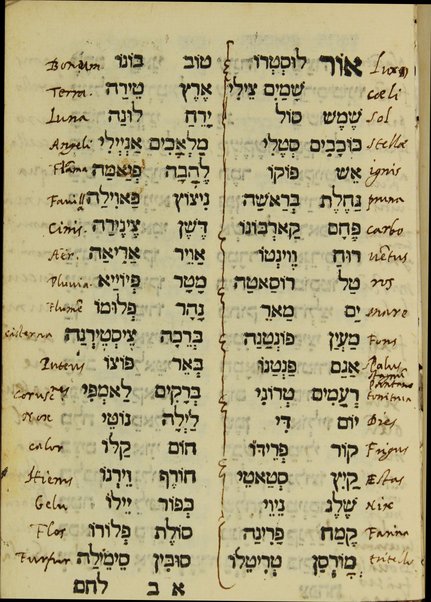 Lux אוֹר לוּסְטְרוֹ טוֹב בּוֹנוֹ Bonum
cæli שָׁמַיִם צֵילִי אֶרֶץ טֵירָה Terra.
Sol שֶׁמֶשׁ סוֹל יָרֵחַ לוּנָה Luna
Stellæ כּוֹכָבִים סְטֵלִי מַלְאָכִים Angeli
ignis אֵשׁ פוֹקוֹ לֶהָבָה Flāma
pruna נַחֶלֶת בְּרַאשָׁה נִיצוֹץ פַאוִילָה
carbo פֶּחָם קַארְבּוֹנוֹ דֶּשֶׁן צֵינֵירָה Cinis.
uētus רוּחַ וֵוינְטוֹ אֲוִיר אַרִיאָה Aer.
ros טַל רוֹסַאטָה מָטָר פְּיוֹיָיא Pluvia
mare יָם מַאר נָהָר פְלוּמוֹ Flumē
Fons מַעְיָן פוֹנְטַנָה בְּרֵכָה צִיסְטֵירְנָה cisterna
Palus אֲגַם פַּנְטַנוֹ בְּאֵר פּוֹצוֹ Puteus
tonitrua רְעָמִים טְרוֹנִי בְּרָקִים לַאמְפִּי
Dies יוֹם דִּי לַיְלָה נוֹטֵי Nox
Frigus קוֹר פְרֵידוֹ חוֹם קַלְדוֹ calor
Æstas קַיִץ סְטַאטֵי חוֹרֶף וֵירְנוֹ Hiems
Nix שֶׁלֶג נֵיוֵי כְּפוֹר יֵילוֹ Gelu
Farina קֶמַח פָרִינָה סוֹלֶת פְלוֹרוֹ Flos
מוּרְסָן טְרִיטֵלוֹ סוּבִּין סֵימֵילָה Furfur
א ב לחם